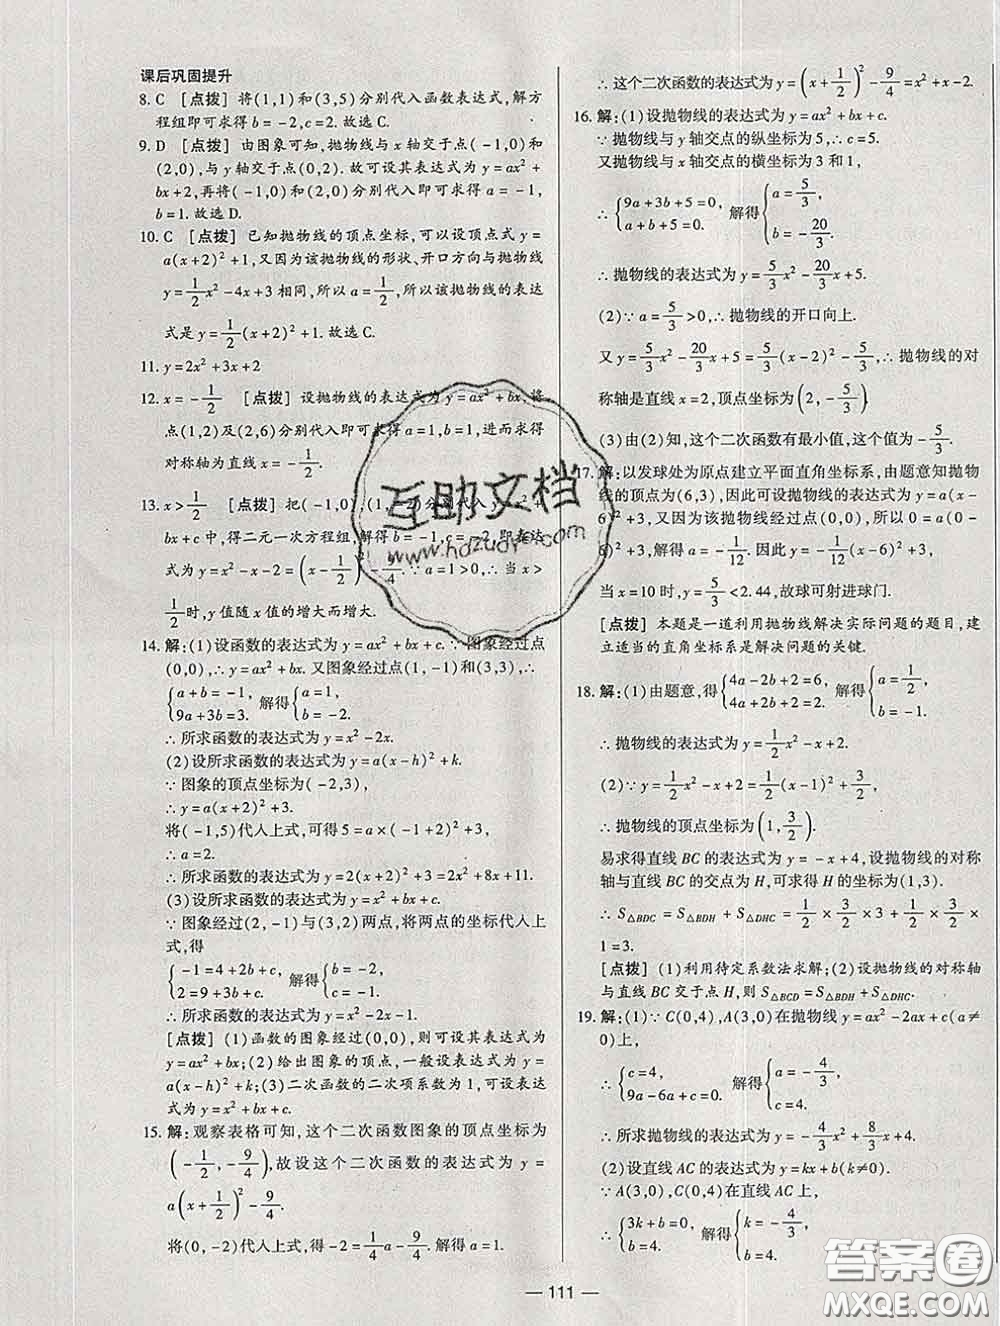 课后巩固提升
8. C [点拨] 将(1,1)和(3,5)分别代入函数表达式,解方
程组即可求得b=-2,c=2.故选C.
9. D [点拨] 由图象可知,抛物线与x轴交于点(-1,0)和
(2,0),与y轴交于点(0,2).故可设其表达式为y=ax²+
bx+2,再将(-1,0)和(2,0)分别代入即可求得a=-1,
b=1.故选D.
10. C [点拨] 已知抛物线的顶点坐标,可以设顶点式y=
a(x+2)²+1,又因为该抛物线的形状、开口方向与抛物线
y=1/2x²-4x+3相同,所以a=1/2,所以该抛物线的表达
式是y=1/2(x+2)²+1.故选C.
11. y=2x²+3x+2
12. x=-1/2 [点拨] 设抛物线的表达式为y=ax²+bx,将
点(1,2)及(2,6)分别代入即可求得a=1,b=1,进而求得
对称轴为直线x=-1/2.
13. x>1/2 [点拨] 把(-1,0),(1,-2)分别代入y=x²+
bx+c中,得二元一次方程组,解得b=-1,c=-2,即表达
式为y=x²-x-2=(x-1/2)²-9/4.∵a=1>0,∴当x>
1/2时,y值随x值的增大而增大.
14. 解:(1)设函数的表达式为y=ax²+bx+c.∵图象经过点
(0,0),∴y=ax²+bx.又图象经过点(1,-1)和(3,3),∴
{a+b=-1, 9a+3b=3. 解得{a=1, b=-2.
∴所求函数的表达式为y=x²-2x.
(2)设所求函数的表达式为y=a(x-h)²+k.
∵图象的顶点坐标为(-2,3),
∴y=a(x+2)²+3.
将(-1,5)代人上式,可得5=a×(-1+2)²+3,
∴a=2.
∴所求函数的表达式为y=2(x+2)²+3=2x²+8x+11.
(3)设所求函数的表达式为y=x²+bx+c.
∵图象经过(2,-1)与(3,2)两点,将两点的坐标代人上
式,得
{-1=4+2b+c, 2=9+3b+c, 解得{b=-2, c=-1.
∴所求函数的表达式为y=x²-2x-1.
[点拨] (1)函数的图象经过(0,0),则可设其表达式为
y=ax²+bx;(2)给出图象的顶点,一般设表达式为y=
a(x-h)²+k;(3)二次函数的二次项系数为1,可设表达
式为y=x²+bx+c.
15. 解:观察表格可知,这个二次函数图象的顶点坐标为
(-1/2,-9/4),故设这个二次函数的表达式为y=
a(x+1/2)²-9/4.
将(0,-2)代人上式,得-2=1/4a-9/4.解得a=1.
∴这个二次函数的表达式为y=(x+1/2)²-9/4=x²+x-2.
16. 解:(1)设抛物线的表达式为y=ax²+bx+c.
∵抛物线与y轴交点的纵坐标为5,∴c=5.
又抛物线与x轴交点的横坐标为3和1,
∴{9a+3b+5=0, a+b+5=0. 解得{a=5/3, b=-20/3.
∴抛物线的表达式为y=5/3x²-20/3x+5.
(2)∵a=5/3>0,∴抛物线的开口向上.
又y=5/3x²-20/3x+5=5/3(x-2)²-5/3,∴抛物线的对
称轴是直线x=2,顶点坐标为(2,-5/3).
(3)由(2)知,这个二次函数有最小值,这个值为-5/3.
17. 解:以发球处为原点建立平面直角坐标系,由题意知抛物
线的顶点为(6,3),因此可设抛物线的表达式为y=a(x-
6)²+3,又因为该抛物线经过点(0,0),所以0=a(0-
6)²+3,解得a=-1/12.因此y=-1/12(x-6)²+3,
当x=10时,y=5/3<2.44,故球可射进球门.
[点拨] 本题是一道利用抛物线解决实际问题的题目,建
立适当的直角坐标系是解决问题的关键.
18. 解:(1)由题意,得{4a-2b+2=6, 4a+2b+2=2. 解得{a=1/2, b=-1.
∴抛物线的表达式为y=1/2x²-x+2.
(2)∵y=1/2x²-x+2=1/2(x-1)²+3/2,
∴抛物线的顶点坐标为(1,3/2).
易求得直线BC的表达式为y=-x+4,设抛物线的对称
轴与直线BC的交点为H,可求得H(1,3).
∴S△BDC=S△BDH+S△DHC=1/2×3/2×3+1/2×3/2×
1=3.
[点拨] (1)利用待定系数法求解;(2)设抛物线的对称轴
与直线BC交于点H,则S△BCD=S△BDH+S△DHC.
19. 解:(1)∵C(0,4),A(3,0)在抛物线y=ax²-2ax+c(a≠
0)上,
∴{c=4, 9a-6a+c=0. 解得{a=-4/3, c=4.
∴所求抛物线的表达式为y=-4/3x²+8/3x+4.
(2)设直线AC的表达式为y=kx+b(k≠0).
∵A(3,0),C(0,4)在直线AC上,
∴{3k+b=0, b=4. 解得{k=-4/3, b=4.
— 111 —
互助文档
www.hdzuoye.com
答案圈
MXQE.COM